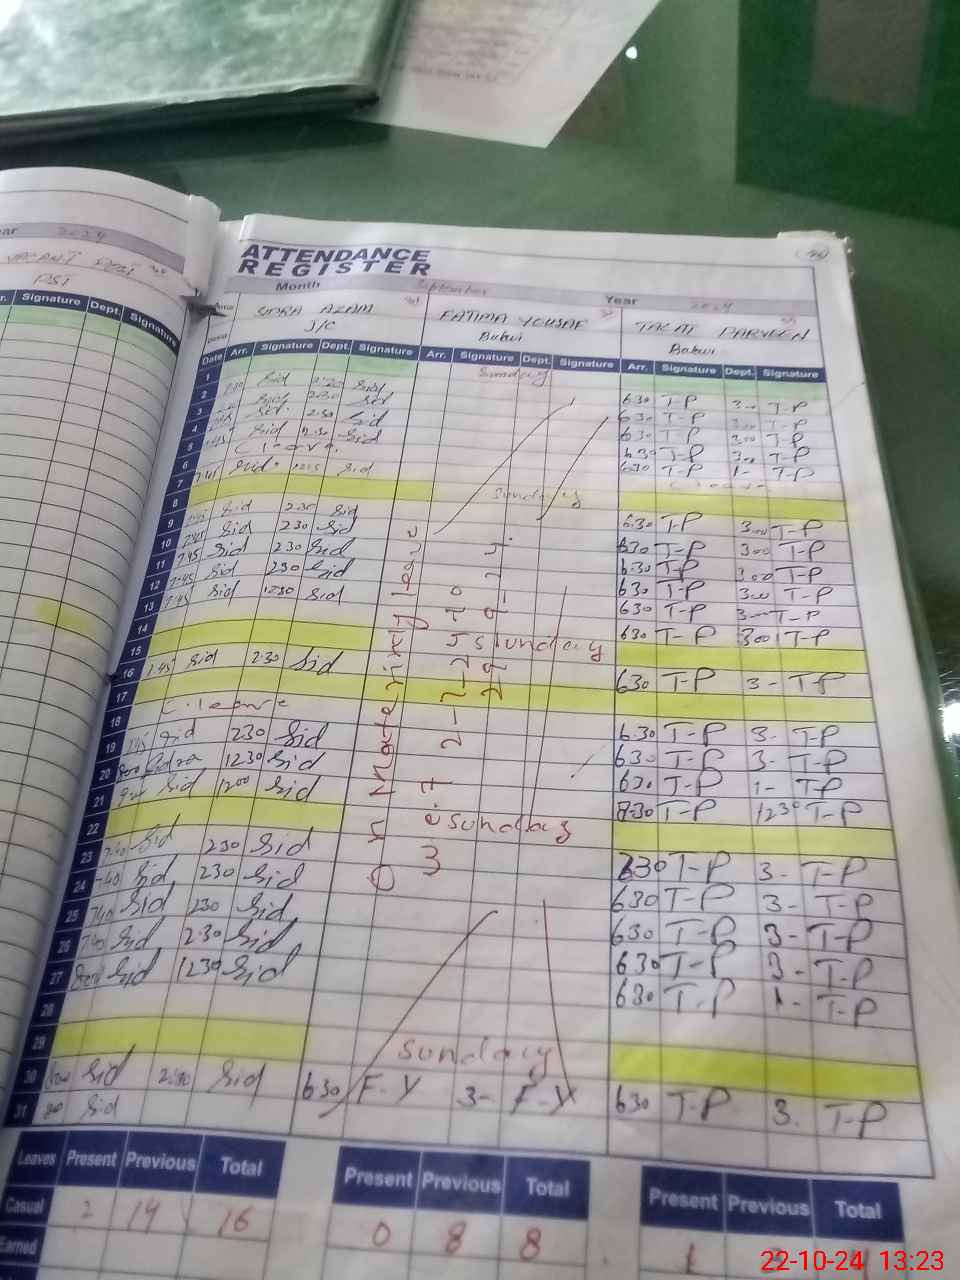 2024
VACANT POST
PST
Signature Dept. Signature
ATTENDANCE
REGISTER
Month September Year 2024
SIDRA AZAM FATIMA YOUSAF TALAT PARVEEN
J/C Bakwi Bakwi
Date Arr. Signature Dept. Signature Arr. Signature Dept. Signature Arr. Signature Dept. Signature
1 Sunday
2 Sid 2:30 Sid 630 T-P 300 T-P
3 Sid 2:30 Sid 630 T-P 300 T-P
4 Sid 2:30 Sid 630 T-P 300 T-P
5 Sid 2:30 Sid 630 T-P 300 T-P
6 C.leave 630 T-P 1- T-P
7 7:45 Sid 1215 Sid C.leave
8 Sunday
9 7:45 Sid 2:30 Sid 6:30 T-P 300 T-P
10 7:45 Sid 230 Sid 630 T-P 300 T-P
11 7:45 Sid 230 Sid 6:30 T-P 300 T-P
12 7:45 Sid 230 Sid 630 T-P 300 T-P
13 7:45 Sid 1230 Sid 630 T-P 300 T-P
14 630 T-P 300 T-P
15 Sunday
16 7:45 Sid 2:30 Sid 630 T-P 3- T-P
17
18 C.leave 6:30 T-P 3- T-P
19 745 Sid 230 Sid 630 T-P 3- T-P
20 800 Sidra 1230 Sid 630 T-P 1- T-P
21 Sid 1200 Sid 7:30 T-P 1230 T-P
22 Sunday
23 7:40 Sid 230 Sid 630 T-P 3- T-P
24 740 Sid 230 Sid 630 T-P 3- T-P
25 740 Sid 230 Sid 630 T-P 3- T-P
26 7:40 Sid 2:30 Sid 630 T-P 3- T-P
27 800 Sid 1230 Sid 630 T-P 1- T-P
28
29 Sunday
30 800 Sid 2:30 Sid 630 F-Y 3- F-Y 630 T-P 3. T-P
31 Sid
On Maternity leave
Leaves Present Previous Total Present Previous Total Present Previous Total
Casual 2 14 16 0 8 8 1
Earned
22-10-24 13:23